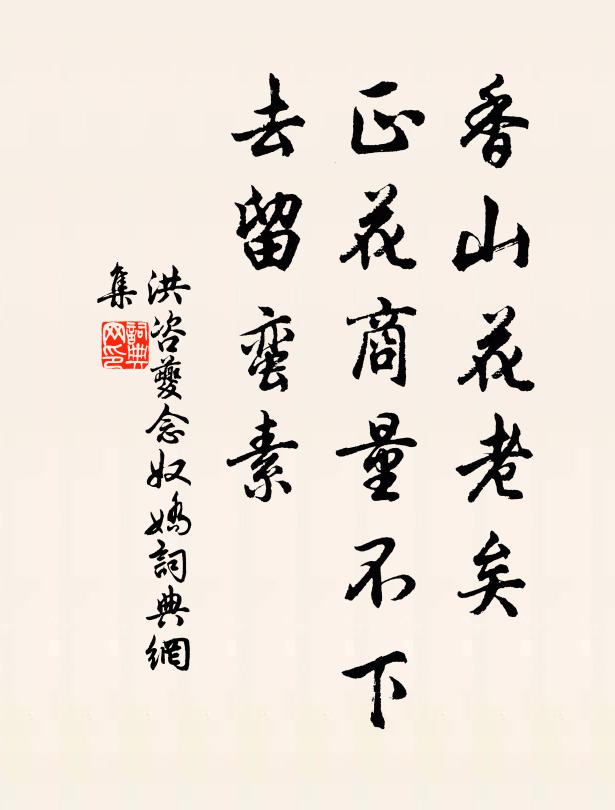 香山花老矣
正花商量不下
去留蛮素
洪咨夔念奴嬌詞典網
集
詞典
网印